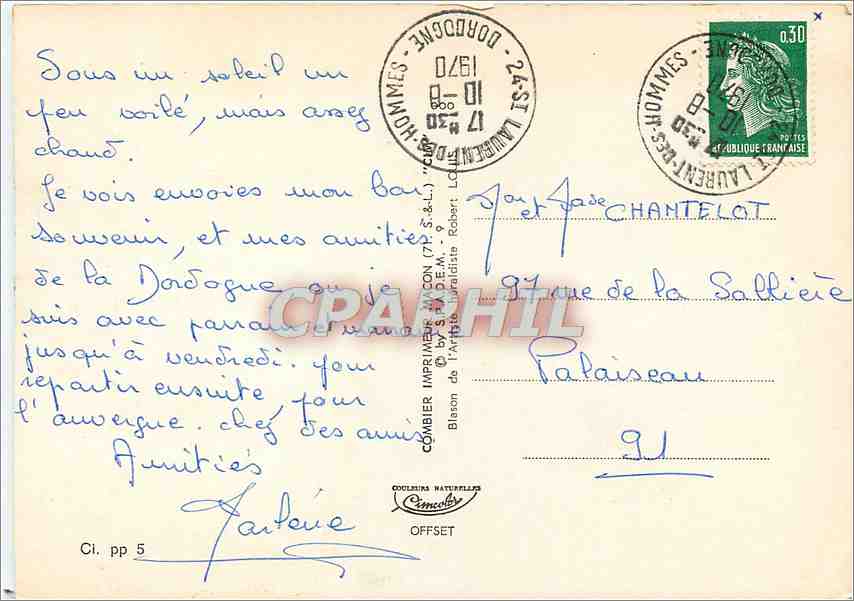 Sous un soleil un
peu voilé, mais assez
chaud.
Je vois envoies mon bon
souvenir, et mes amitiés
de la Dordogne ou je
suis avec parrain et marraine
jusqu'à vendredi. pour
repartir ensuite, pour
l'auvergne. chez des amis
Amitiés
Marlène
Ci. pp 5
COMBIER IMPRIMEUR MACON (71. S.&L.) "CIM"
© by S.P.A.D.E.M. - 9
Blason de l'Artiste héraldiste Robert LOUIS
COULEURS NATURELLES
Cimcolor
OFFSET
24-ST LAURENT-DES-HOMMES - DORDOGNE -
17 H30
10-8
1970
24-ST LAURENT-DES-HOMMES - DORDOGNE
17 H30
10-8
1970
0,30
POSTES
REPUBLIQUE FRANÇAISE
et CHANTELOT
97 rue de la Sablière
Palaiseau
91
CPARHIL